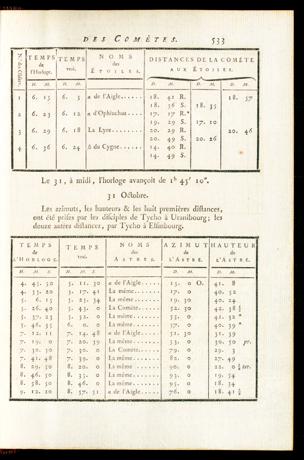 DES COMÈTES. 533
N.° des Observ. TEMPS de l'Horloge. TEMPS vrai. NOMS des ÉTOILES. DISTANCES DE LA COMÈTE AUX ÉTOILES.
H. M. H. M. D. M. D. M. D. M.
1 6. 15 6. 5 a de l'Aigle...... 18. 42 R. 18. 57
18. 36 S. 18. 35
2 6. 23 6. 12 a d'Ophiuchus... 17. 17 R.*
19. 29 S. 17. 10
3 6. 29 6. 18 La Lyre........ 20. 29 R. 20. 46
20. 49 S. 20. 26
4 6. 36 6. 24 du Cygne...... 14. 40 R.
14. 49 S.
Le 31, à midi, l'horloge avançoit de 1h 45' 10".
31 Octobre.
Les azimuts, les hauteurs & les huit premières distances,
ont été prises par les disciples de Tycho à Uranibourg; les
douze autres distances, par Tycho à Elsinbourg.
TEMPS de L'HORLOGE. TEMPS vrai. NOMS des ASTRES. AZIMUT de L'ASTRE. HAUTEUR de L'ASTRE.
H. M. S. H. M. S. D. M. D. M.
4. 45. 50 5. 11. 30 a de l'Aigle..... 15. 0 O. 41. 8
4. 53. 20 5. 17. 41 La même...... 17. 0 40. 52
5. 6. 15 5. 25. 34 La même...... 19. 30 40. 24
5. 26. 40 5. 43. 0 La Comète..... 52. 30 42. 38
5. 37. 23 5. 52. 0 La même...... 55. 0 41. 32 *
5. 46. 35 6. 0. 0 La même...... 57. 0 40. 39 *
7. 12. 1 7. 14. 48 a de l'Aigle..... 51. 0 31. 30
7. 19. 0 7. 20. 39 La même...... 53. 0 30. 50 pr.
7. 30. 50 7. 30. 0 La Comète..... 79. 0 29. 3
7. 41. 48 7. 39. 0 La même...... 82. 0 27. 49
8. 29. 50 8. 23. 0 La même...... 90. 0 ter.
8. 46. 50 8. 35. 0 La même...... 93. 0 19. 54
8. 58. 50 8. 46. 0 La même...... 95. 0 18. 34
9. 12. 20 8. 57. 51 a de l'Aigle..... 76. 0 18. 41